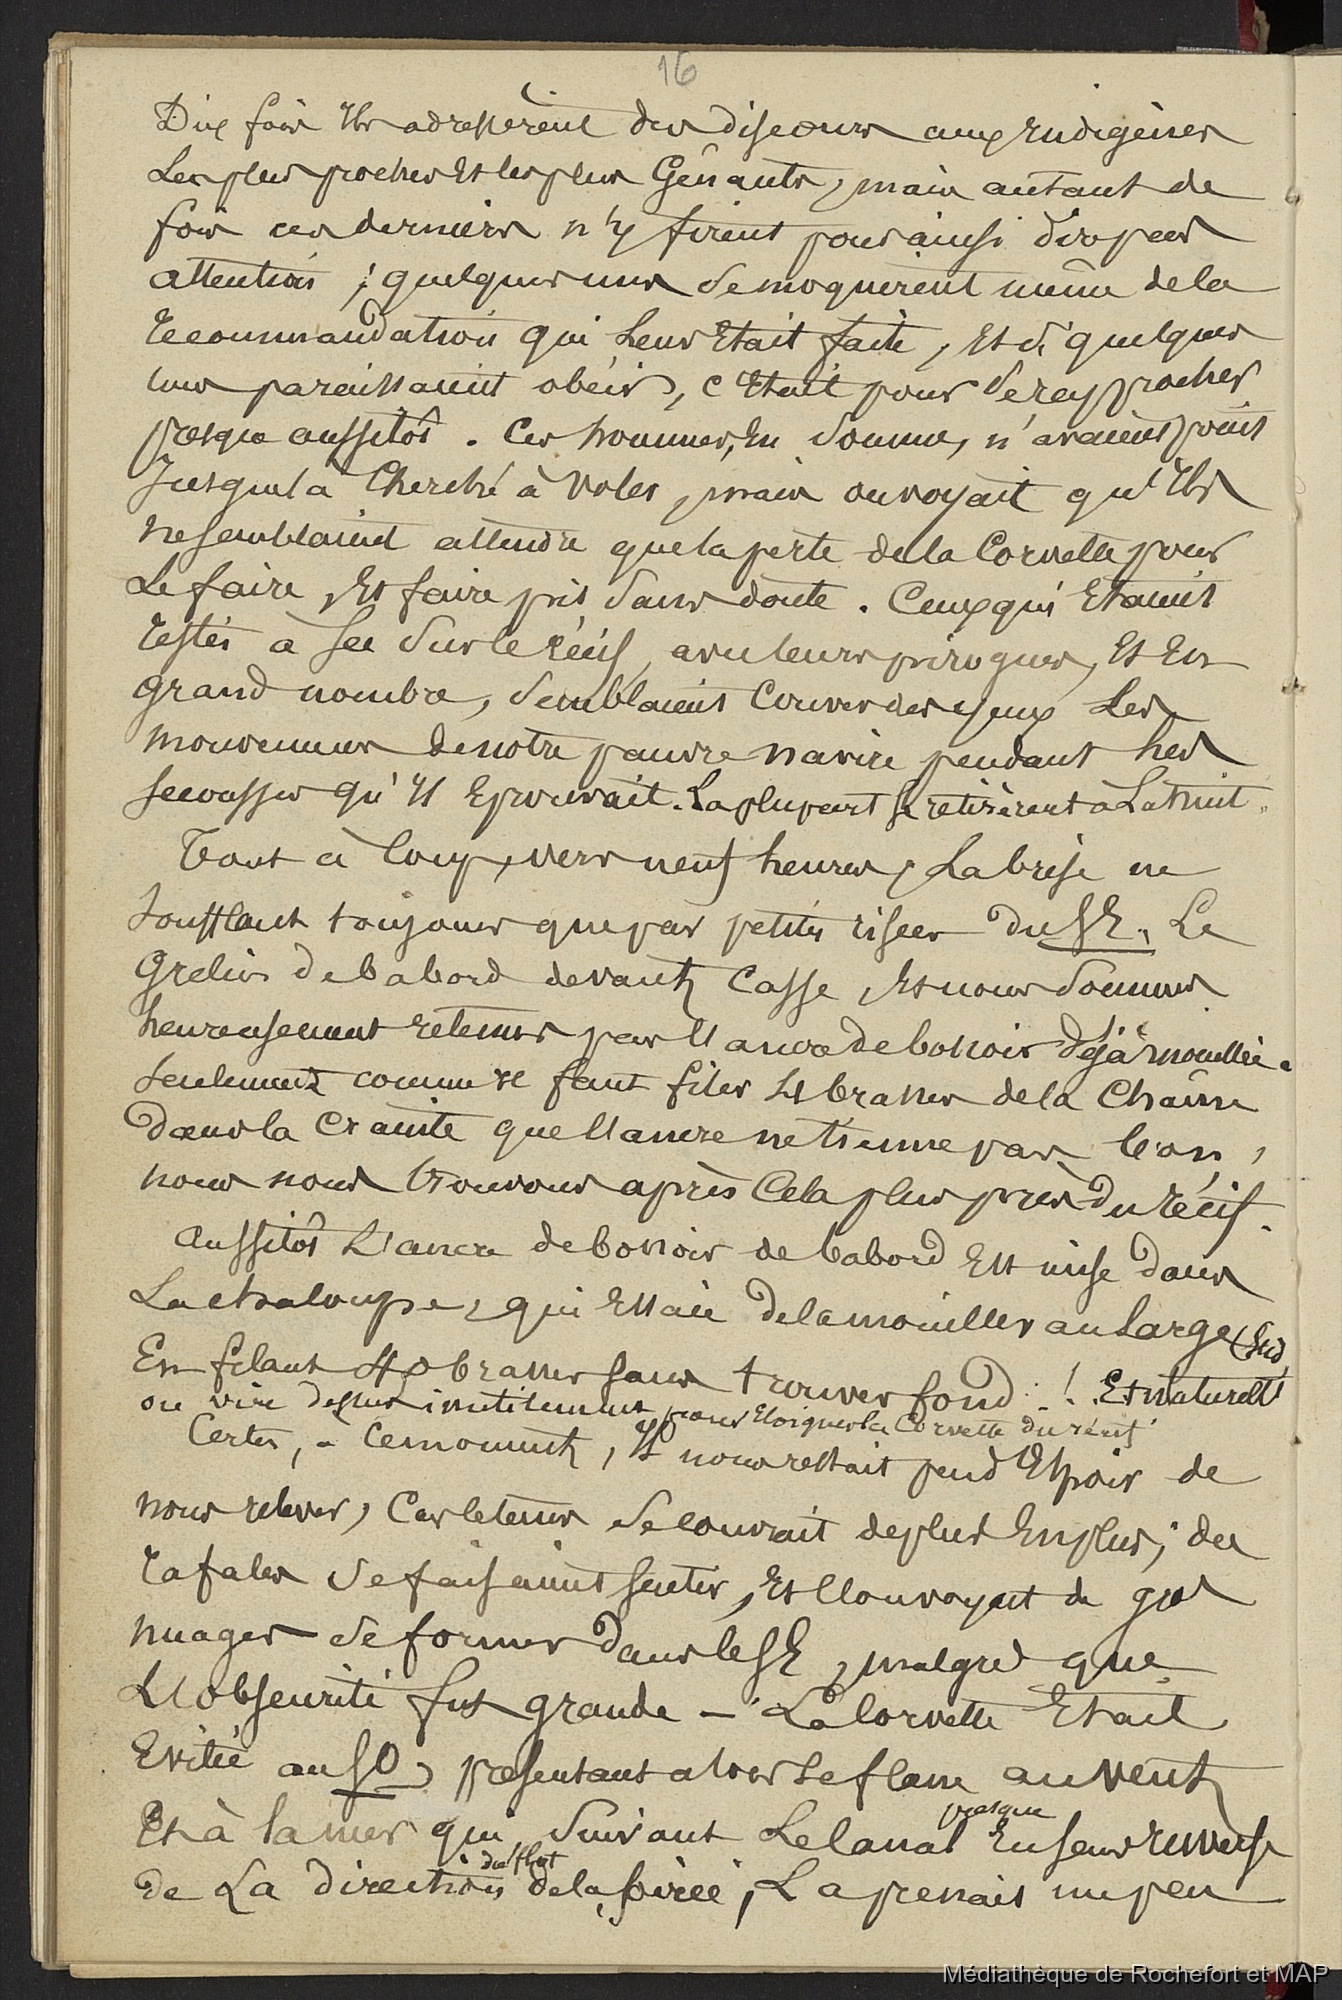 16
Dix fois Ils adressèrent des discours aux Indigènes
Les plus proches Et les plus Gênants, mais autant de
fois ces derniers n'y firent pour ainsi dire pas
attention ; quelques uns se moquèrent même de la
recommandation qui Leur Etait faite, Et si quelques
uns paraissaient obéir, c'Etait pour se rapprocher
presque aussitôt. Ces hommes, En somme, n'avaient point
Jusque là Cherché à voler, mais on voyait qu'Ils
ne semblaient attendre que la perte de la Corvette pour
Le faire, Et faire pis sans doute. Ceux qui Etaient
restés à sec sur le récif, avec leurs pirogues, Et En
grand nombre, semblaient Couver des yeux Les
mouvements de notre pauvre navire pendant Les
secousses qu'Il Eprouvait. La plupart se retirèrent à La Nuit.
Tout à Coup, vers neuf heures, La brise ne
soufflant toujours que par petites risées du SE, Le
Grelin de babord devant Casse, Et nous sommes
heureusement retenus par L'ancre de bossoir déjà mouillée.
seulement comme Il faut filer des brasses de la Chaîne
dans la Crainte que L'ancre ne tienne pas bon,
nous nous trouvons après Cela plus près du récif.
Aussitôt L'ancre de bossoir de babord Est mise dans
La chaloupe, qui Essaie de la mouiller au Large (Sud)
En filant 40 brasses sans trouver fond ..! . Et naturellt
on vire dessus inutilement pour Eloigner la Corvette du récif
Certes, à Ce moment, Il nous restait peu d'Espoir de
nous relever, Car le temps se couvrait de plus En plus ; des
rafales se faisaient sentir, Et L'on voyait de gros
nuages se former dans le SE, malgré que
L'obscurité fut grande – La Corvette Etait
Evitée au SO, présentant alors Le flanc au vent
Et à la mer qui, suivant Le Canal presque En sens inverse
de La direction du flot de la soirée, La prenait un peu
Médiathèque de Rochefort et MAP